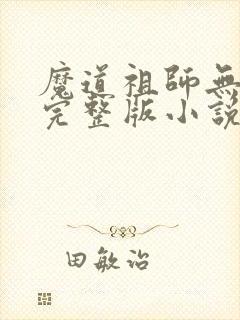 魔道祖師無
完整版小說
田敏治